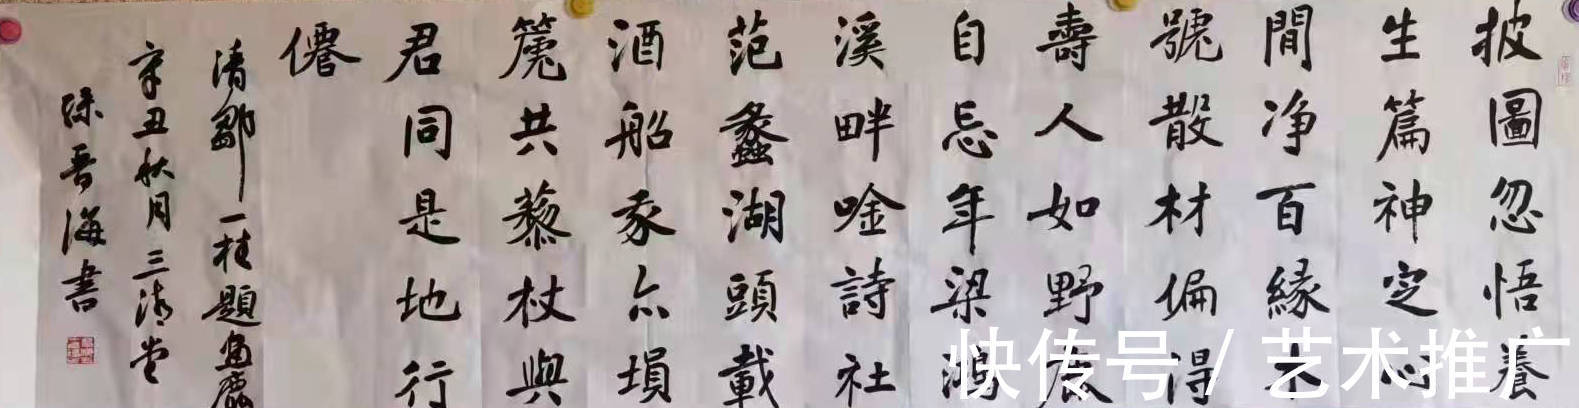 披圖忽悟養
生篇神定心
閒净百緣木
號散材偏得
壽人如野鹿
自忘年梁鴻
溪畔唫詩社
范蠡湖頭載
酒船亦塤
篪共藜杖與
君同是地行
僊
清鄒一桂題畫鹿
辛丑秋月三清堂
海書
快传号 / 艺术推广